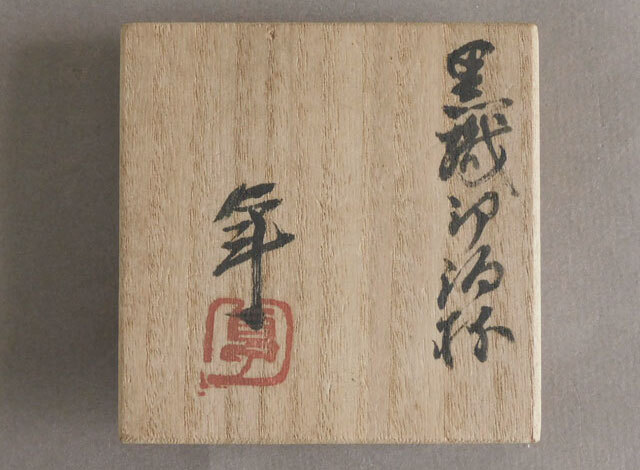 黒織部酒杯
年